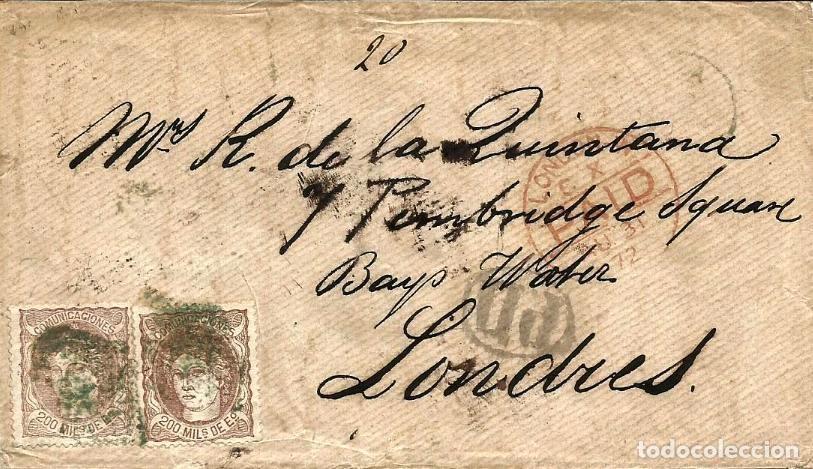 20
Mrs R. de la Quintana
7 Pembridge Square
Bays Water
Londres.
LON
X
PAID
31
72
PD
COMUNICACIONES
200 MILS DE E
COMUNICACIONES
200 MILS DE Eo
todocoleccion